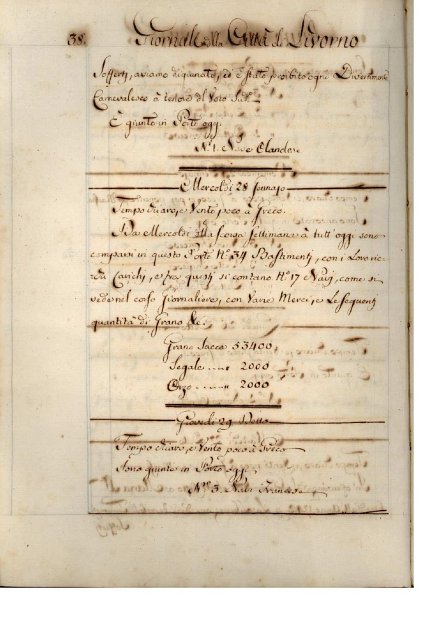 38. Giornale della Città di Livorno
Sofferti, aviamo digiunato, ed è stato proibito ogni Divertimento
Carnevalesco a tenore del Voto
È giunto in Porto oggi
N.º 1. Nave Olandese
Mercoldi 28 Gennajo
Tempo chiaro, e Vento poco à Greco.
Da Mercoldi della scorsa settimana à tutt'oggi sono
comparsi in questo Porto N.º 34 Bastimenti, con i Loro ric-
chi Carichi, e fra questi si contano N.º 17 Navi, come si
vede nel corso Giornaliero, con Varie Merci, e Le seguenti
quantità di Grano &c.
Grano Sacca 53400.
Segale 2000
Orzo 2000
Giovedì 29 Detto
Tempo chiaro, e Vento poco à Greco
Sono giunte in Porto oggi
N.º 3. Navi Francese